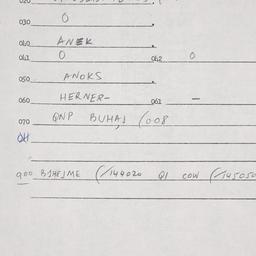 030 0
040 ANEK
041 0 042 0
050 ANOKS
060 HERNER- 061 —
070 QNP BUHAJ (008
900 (/144020 QI COW (/145050